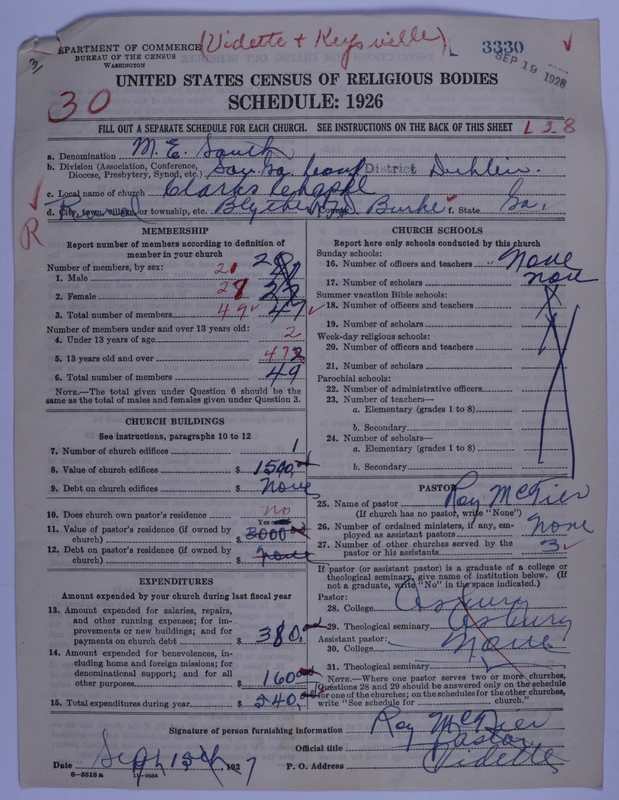 (Vidette + Keysville)
3330
SEP 19 1928
DEPARTMENT OF COMMERCE
BUREAU OF THE CENSUS
WASHINGTON
UNITED STATES CENSUS OF RELIGIOUS BODIES
SCHEDULE: 1926
30
FILL OUT A SEPARATE SCHEDULE FOR EACH CHURCH. SEE INSTRUCTIONS ON THE BACK OF THIS SHEET
L 3-8
a. Denomination M. E. South
b. Division (Association, Conference, Diocese, Presbytery, Synod, etc.) So. Ga. Conf District Dublin.
c. Local name of church Clarks Chapel
d. City, town, village, or township, etc. Blythe County Burke f. State Ga.
R
MEMBERSHIP
Report number of members according to definition of
member in your church
Number of members, by sex:
1. Male 21
2. Female 28 27
3. Total number of members 49 47
Number of members under and over 13 years old:
4. Under 13 years of age 2
5. 13 years old and over 47
6. Total number of members 49
NOTE.—The total given under Question 6 should be
same as the total of males and females given under Question 3.
CHURCH BUILDINGS
See instructions, paragraphs 10 to 12
7. Number of church edifices 1
8. Value of church edifices $ 1500.00
9. Debt on church edifices $ None
10. Does church own pastor's residence no
Yes
11. Value of pastor's residence (if owned by
church) $ 3000.00
12. Debt on pastor's residence (if owned by
church) $ None
EXPENDITURES
Amount expended by your church during last fiscal year
13. Amount expended for salaries, repairs,
and other running expenses; for im-
provements or new buildings; and for
payments on church debt $ 380.00
14. Amount expended for benevolences, in-
cluding home and foreign missions; for
denominational support; and for all
other purposes $ 160.00
15. Total expenditures during year $ 540.00
CHURCH SCHOOLS
Report here only schools conducted by this church
Sunday schools:
16. Number of officers and teachers None
17. Number of scholars None
Summer vacation Bible schools:
18. Number of officers and teachers
19. Number of scholars
Week-day religious schools:
20. Number of officers and teachers
21. Number of scholars
Parochial schools:
22. Number of administrative officers
23. Number of teachers—
a. Elementary (grades 1 to 8)
b. Secondary
24. Number of scholars—
a. Elementary (grades 1 to 8)
b. Secondary
PASTOR
25. Name of pastor Roy McTier
(If church has no pastor, write "None")
26. Number of ordained ministers, if any, em-
ployed as assistant pastors None
27. Number of other churches served by the
pastor or his assistants 3
If pastor (or assistant pastor) is a graduate of a college or
theological seminary, give name of institution below. (If
not a graduate, write "No" in the space indicated.)
Pastor:
28. College Asbury
29. Theological seminary Asbury
Assistant pastor:
30. College None
31. Theological seminary
NOTE.—Where one pastor serves two or more churches,
Questions 28 and 29 should be answered only on the schedule
for one of the churches; on the schedules for the other churches,
write "See schedule for church."
Signature of person furnishing information Roy McTier
Official title Pastor
Date Sept 15th 1927 P. O. Address Vidette
8-5518 a